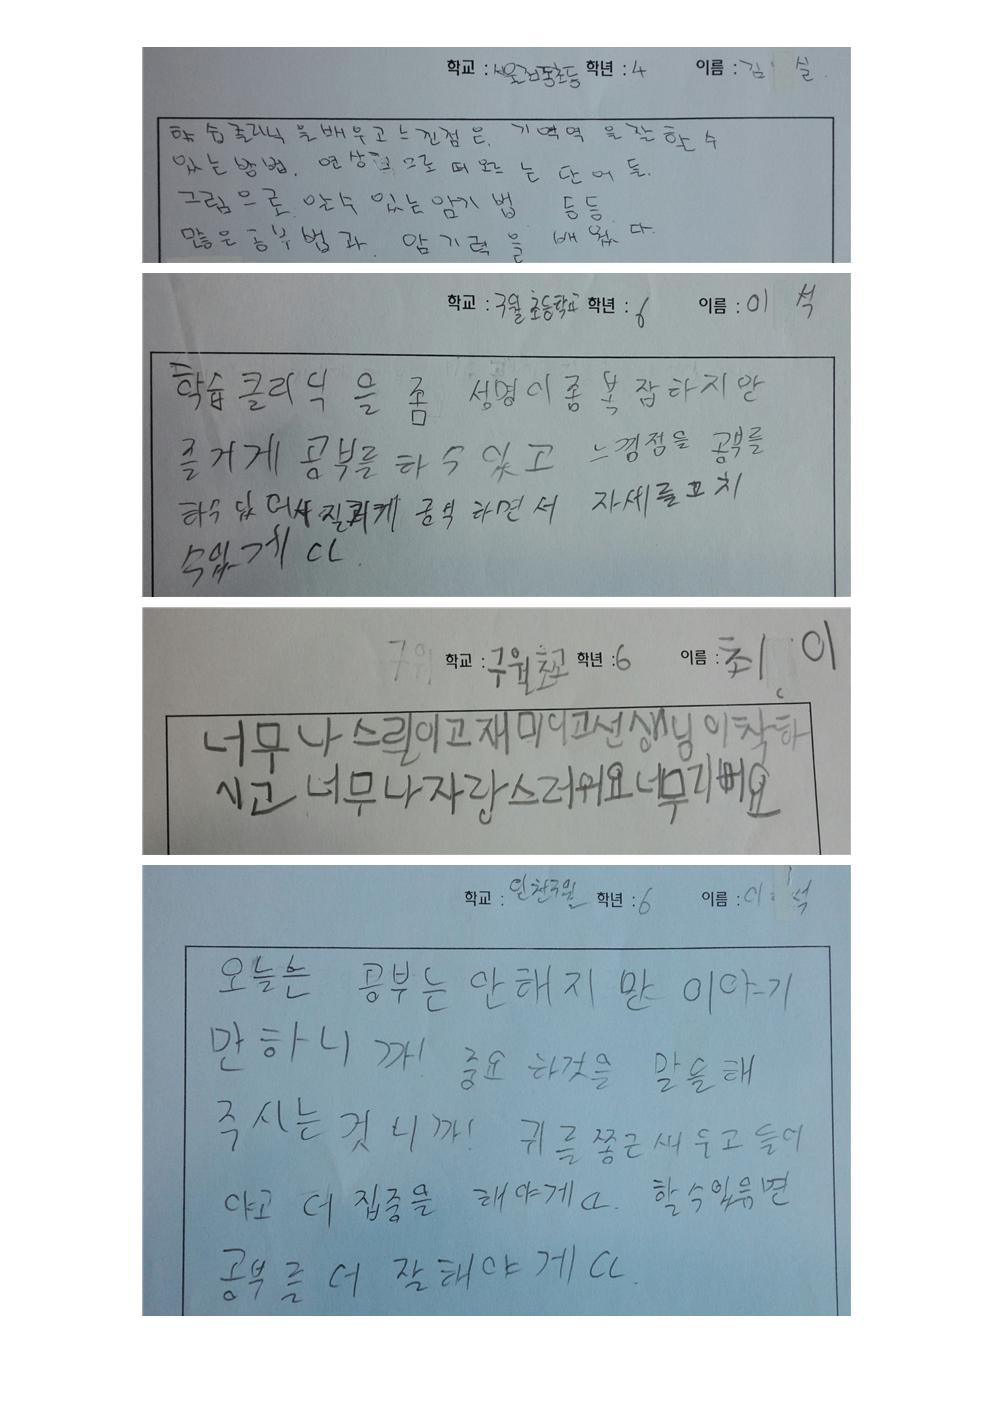 학교 : 학년 : 4 이름 : 김 실
학습클리닉 을 배우고 느낀점 은, 기억력 을 잘 할 수
있는 방법, 연상 으로 떠오르 는 단어 들,
그림으로 알수 있는 암기 법 등등
많은 공부 법 과, 암기력 을 배웠 다.
학교 : 구월 초등학교 학년 : 6 이름 : 이 석
학습 클리닉 을 좀 성명이 좀 복잡하지만
즐거게 공부를 하 수 있고 느낌점을 공부를
하수 있 공부 하면서 자세를 고치
수있게다.
학교 : 구월초교 학년 : 6 이름 : 최 이
너무나 스릴이고 재미이고 선생님이 착하
시고 너무나 자랑스러워요 너무 기뻐요
학교 : 인천구월 학년 : 6 이름 : 이 석
오늘은 공부는 안해지만 이야기
만하니까! 중요 하것을 말을해
주시는 것니까! 귀를 쫑근 새우고 들어
야고 더 집중을 해야게다. 할수있음면
공부를 더 잘해야게다.